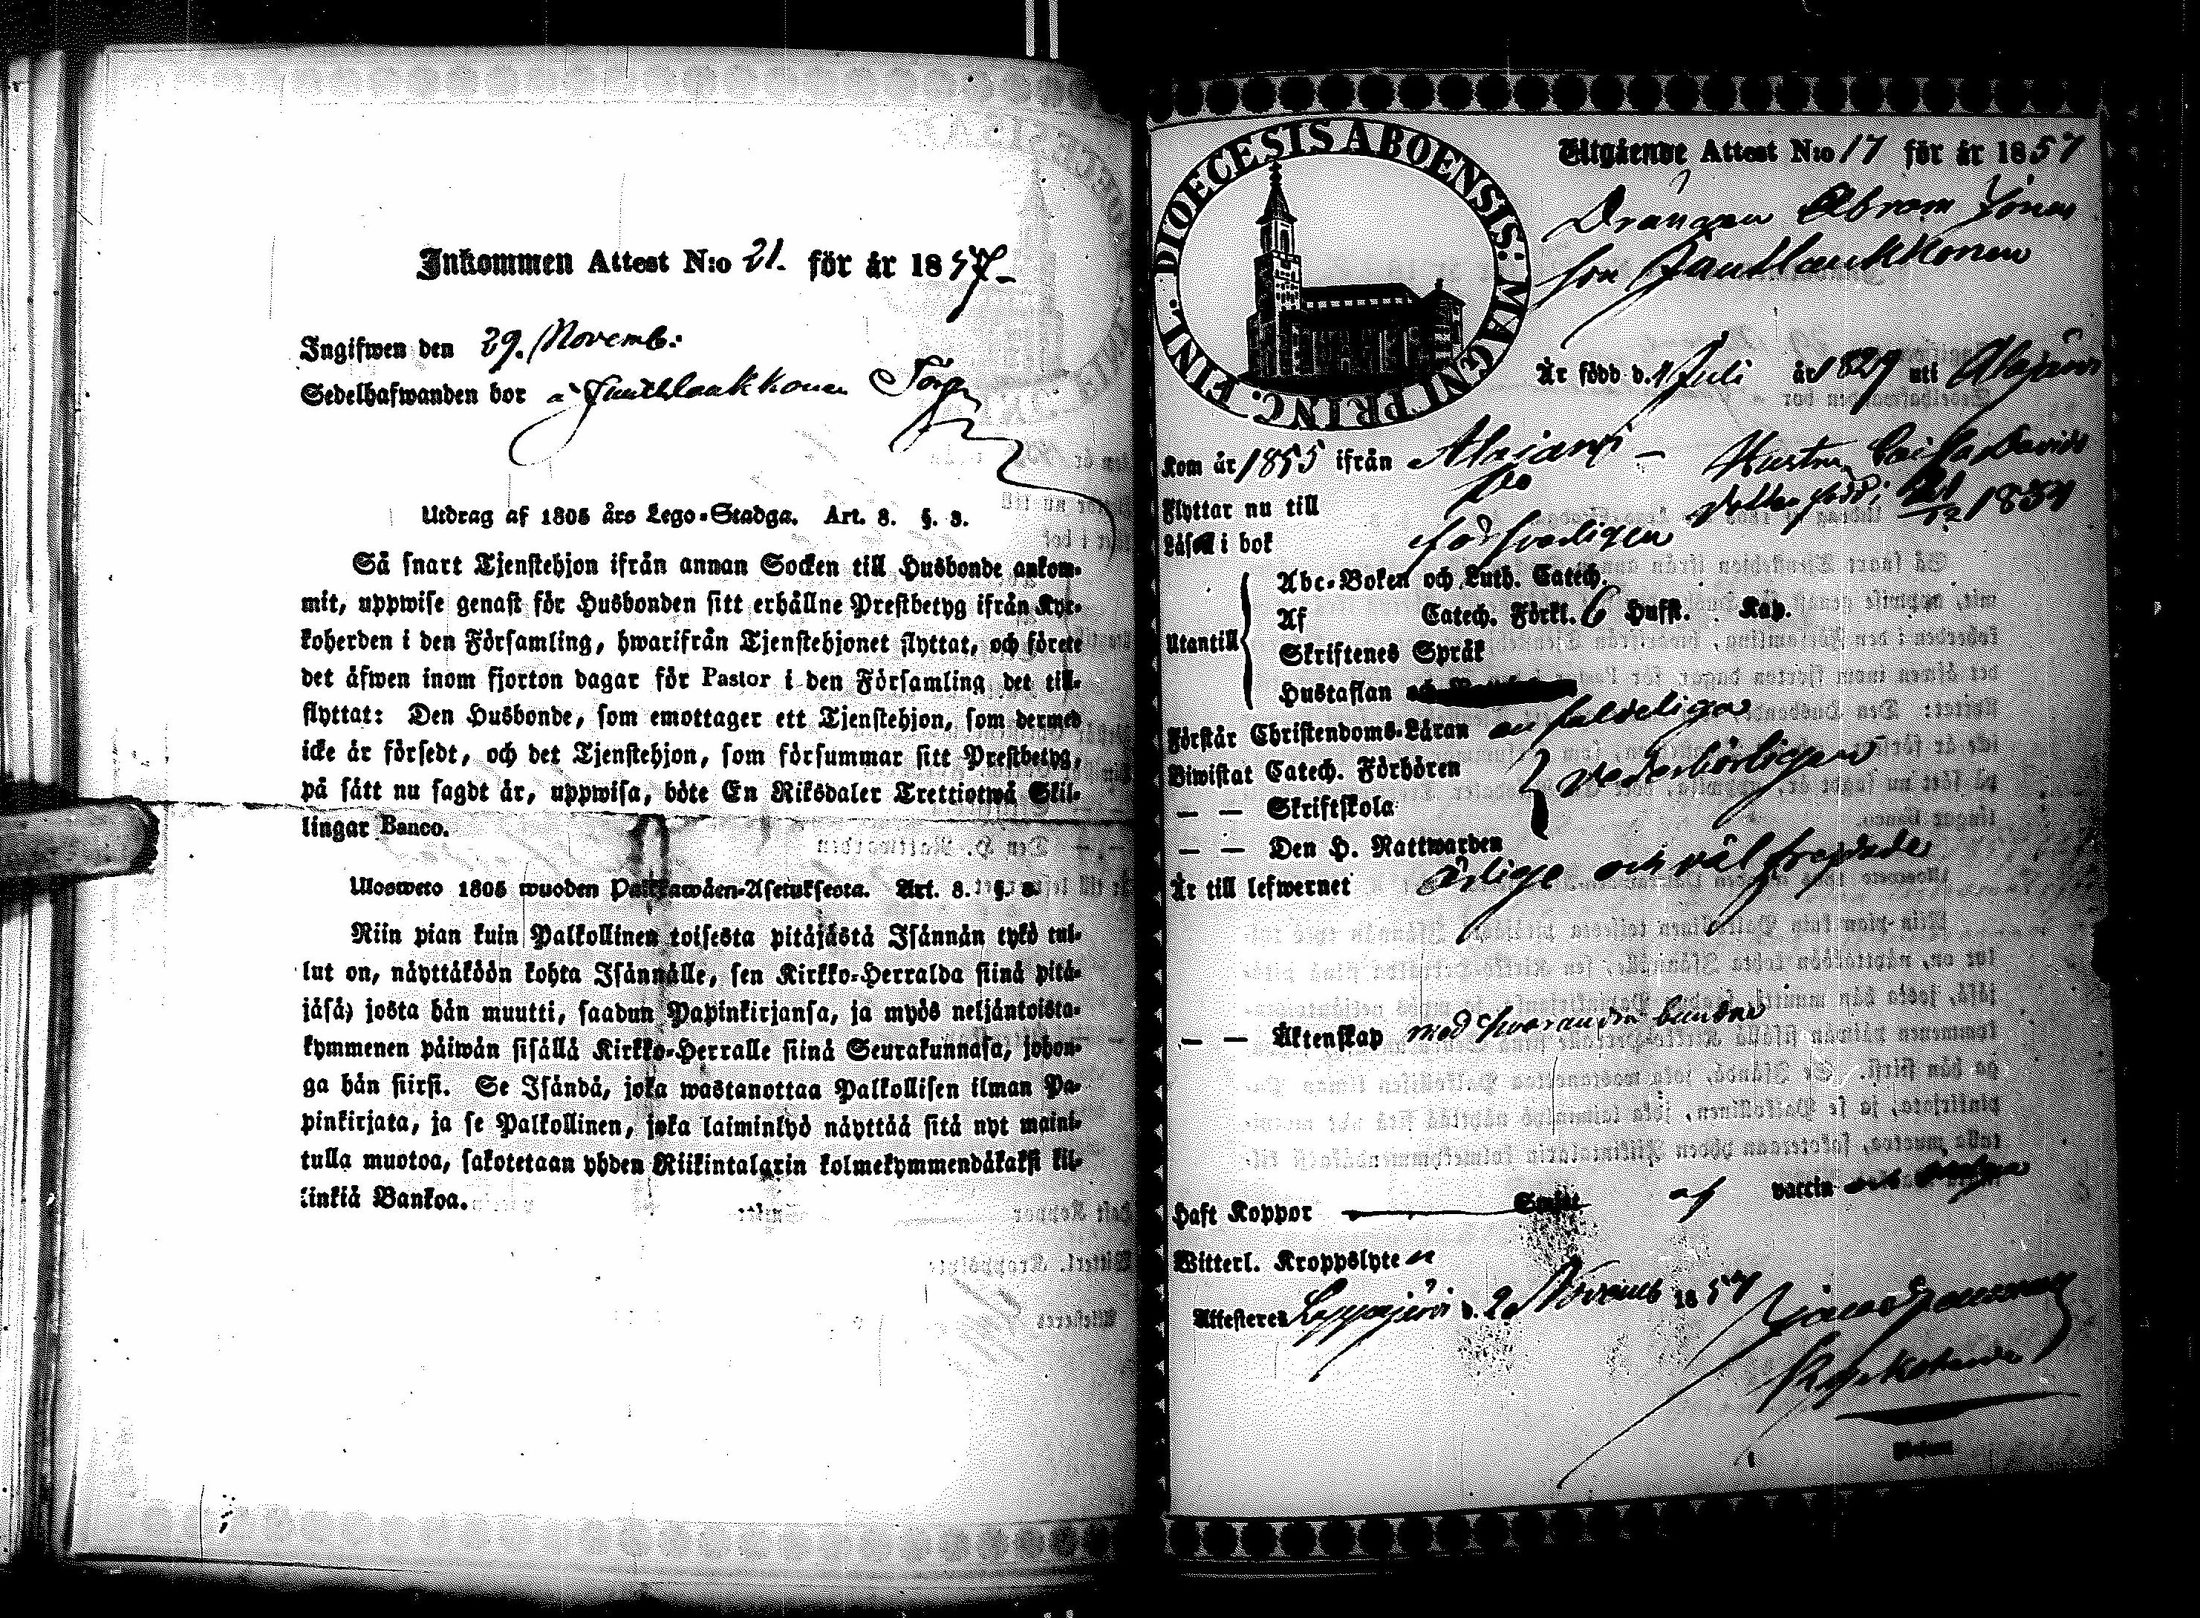 Inkommen Attest N:o 21. för år 1857
Ingifwen den 29. Novemb:
Sedelhafwanden bor à Jauhlaukkonen Torp
Utdrag af 1805 års Lego-Stadga. Art. 8. §. 3.
Så snart Tjenstehjon ifrån annan Socken till Husbonde ankom-
mit, uppwise genast för Husbonden sitt erhållne Prestbetyg ifrån Kyr-
koherden i den Församling, hwarifrån Tjenstehjonet flyttat, och förete
det äfwen inom fjorton dagar för Pastor i den Församling det till-
flyttat: Den Husbonde, som emottager ett Tjenstehjon, som dermed
icke är försedt, och det Tjenstehjon, som försummar sitt Prestbetyg,
på sätt nu sagdt är, uppwisa, böte En Riksdaler Trettiotwå Skil-
lingar Banco.
Ulosweto 1805 wuoden Palkkawäen-Asetuksesta. Art. 8. §. 3.
Niin pian kuin Palkollinen toisesta pitäjästä Isännän tykö tul-
lut on, näyttäköön kohta Isännälle, sen Kirkko-Herralda siinä pitä-
jäsä, josta hän muutti, saadun Papinkirjansa, ja myös neljäntoista-
kymmenen päiwän sisällä Kirkko-Herralle siinä Seurakunnasa, johon-
ga hän siirsi. Se Isändä, joka wastanottaa Palkollisen ilman Pa-
pinkirjata, ja se Palkollinen, joka laiminlyö näyttää sitä nyt maini-
tulla muotoa, sakotetaan yhden Riikintalarin kolmekymmendäkaksi kil-
linkiä Bankoa.
FINL. DIOECESIS ABOENSIS: MAGNI PRINC.
Utgående Attest N:o 17 för år 1857
Drängen Abram Jonas
son Jauhlaukkonen
Är född d. 4 Juli år 1829 uti Alajärvi
Kom år 1855 ifrån Alajärvi - Hustru Caisa Davids
Flyttar nu till Do dotter född 21/12 1831
Läser i bok försvarligen
Utantill
Abc-Boken och Luth. Catech.
Af Catech. Förkl. 6 Hufst. Kap.
Skriftenes Språk
Hustaflan
Förstår Christendoms-Läran enfaldeliga
Biwistat Catech. Förhören vederbörligen
— — Skriftskola
— — Den H. Nattwarden
Är till lefwernet ärlige och väl frejdade
— — Äktenskap med hvarandra bundne
Haft Koppor af vaccin
Witterl. Kroppslyte
Attesteres Lappajärvi d. 2 Novemb 1857
Kyrkoherde